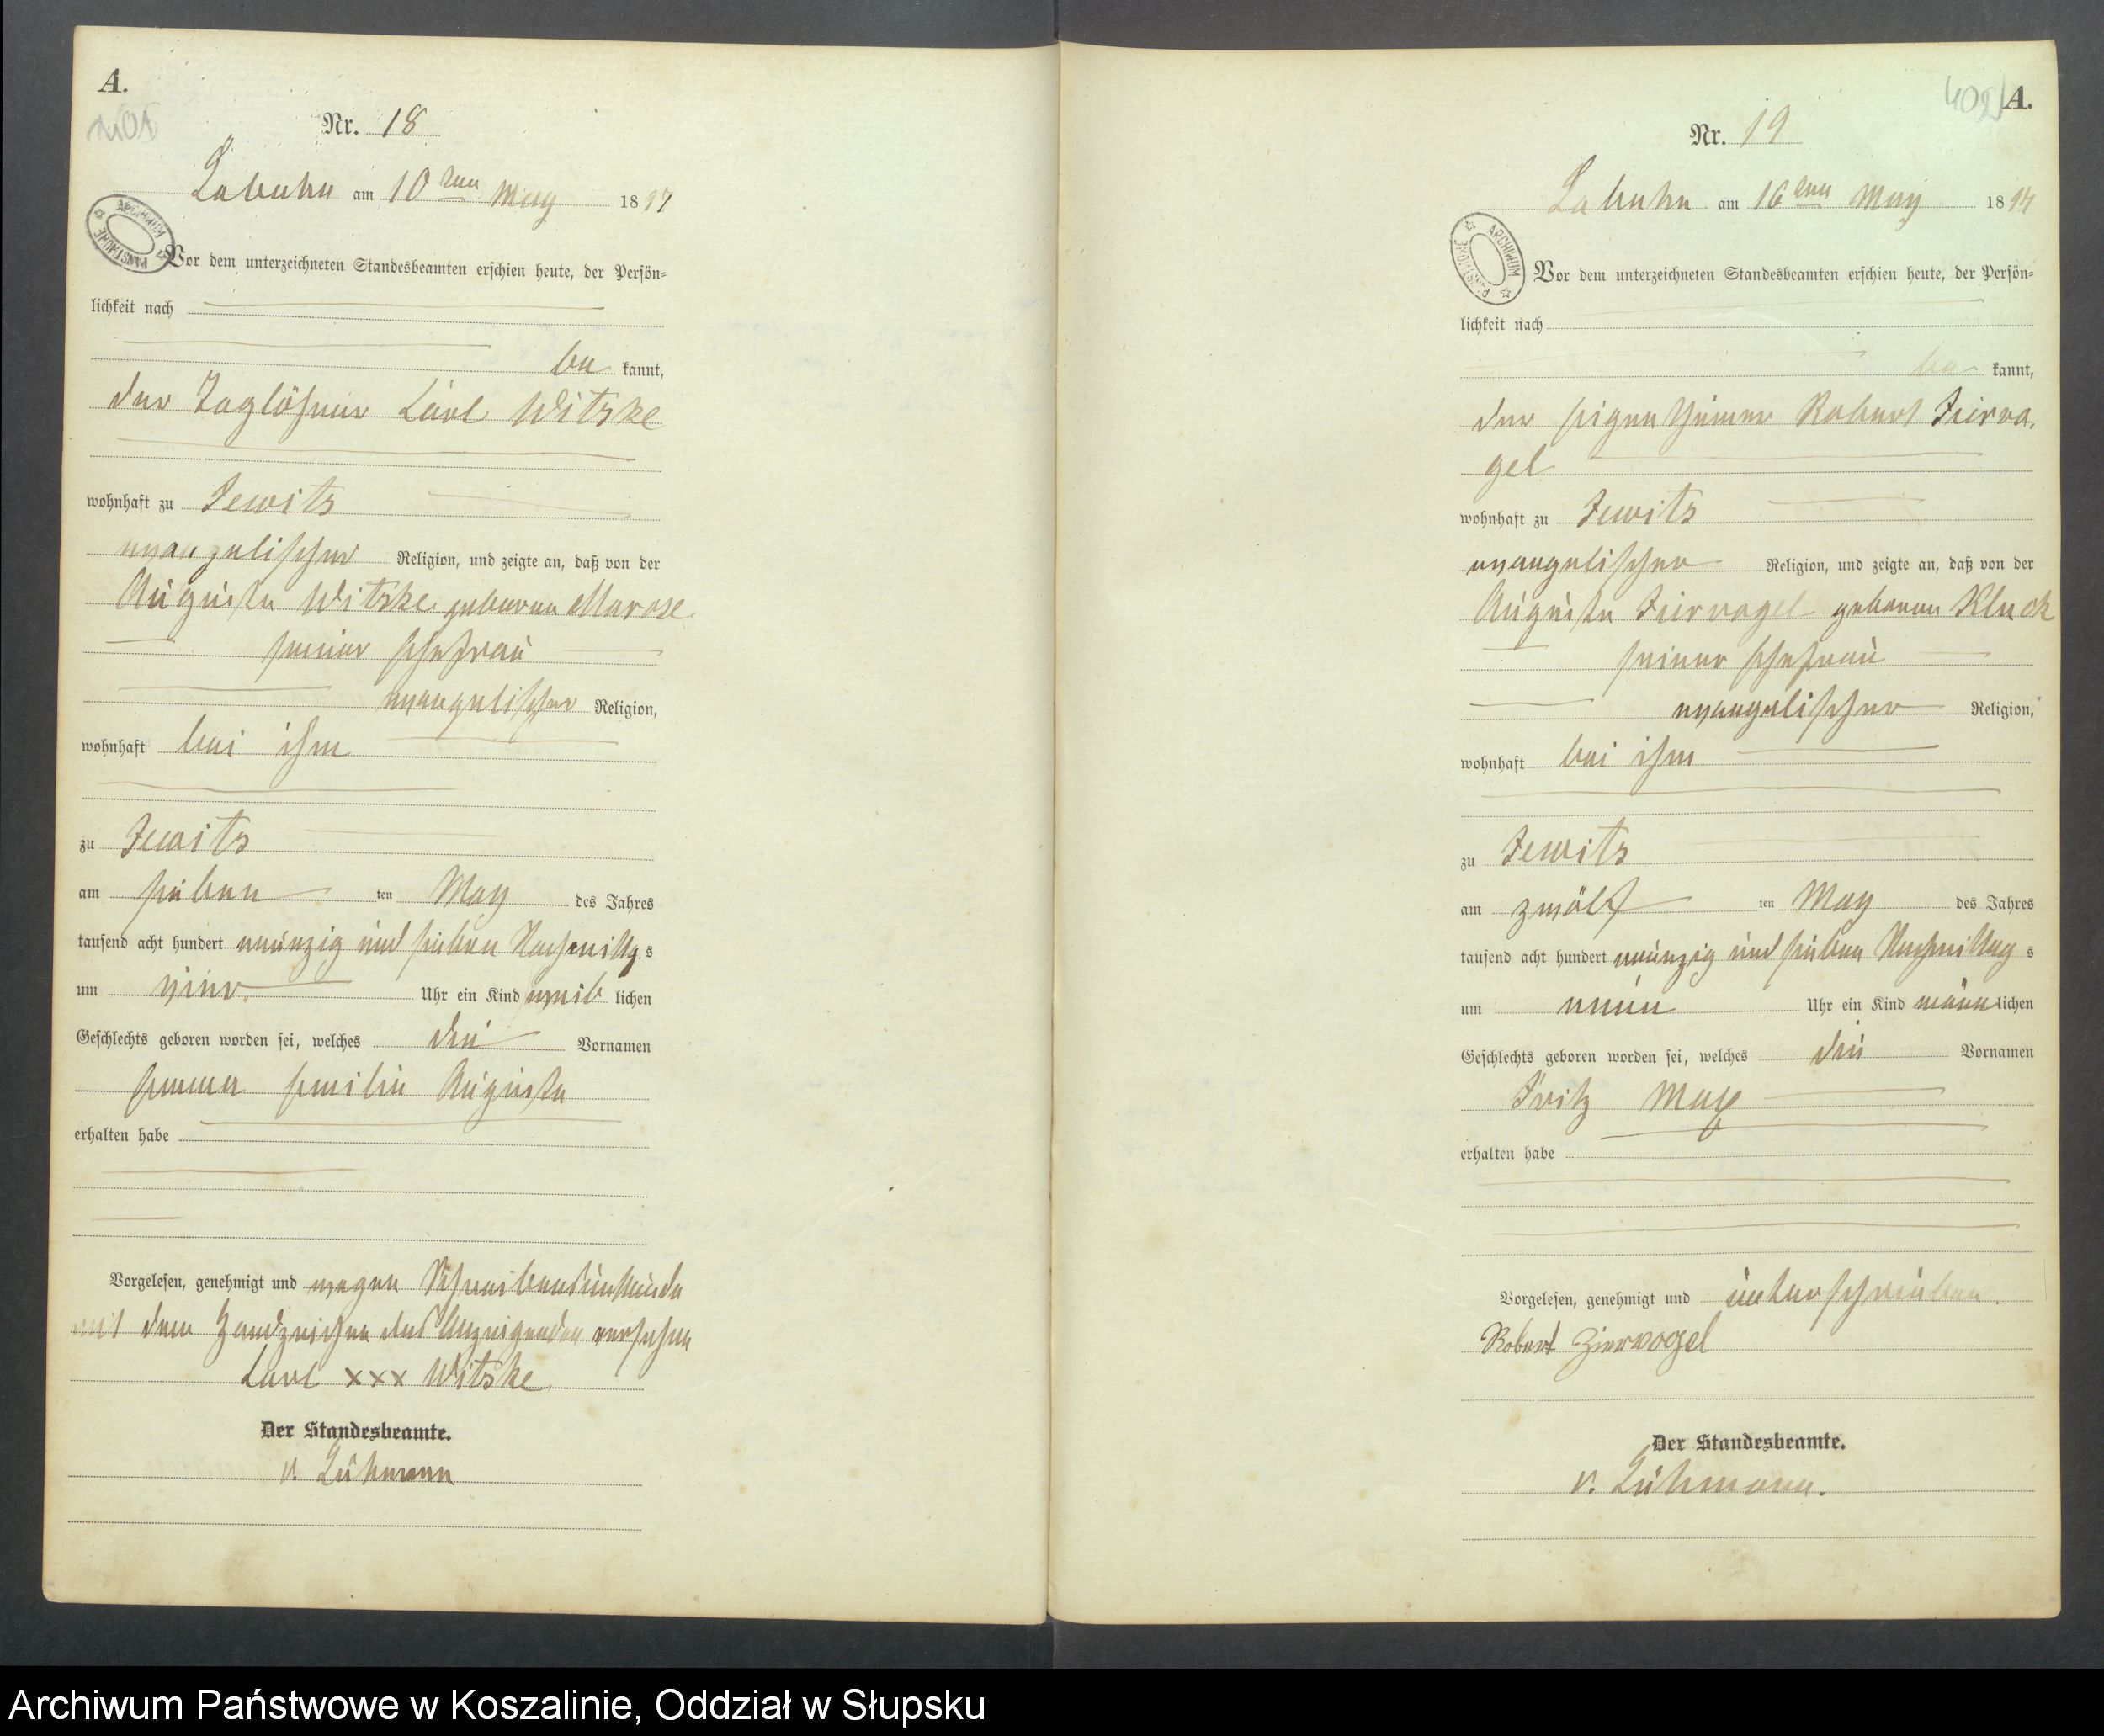 A.
Nr. 18
Labuhn am 10ten May 1897
Vor dem unterzeichneten Standesbeamten erschien heute, der Persön-
lichkeit nach
be kannt,
der Taglöhner Carl Witzke
wohnhaft zu Jewitz
evangelischer Religion, und zeigte an, daß von der
Auguste Witzke geborene Marose
seiner Ehefrau
evangelischer Religion,
wohnhaft bei ihm
zu Jewitz
am sieben ten May des Jahres
tausend acht hundert neunzig und sieben Nachmittags
um vier Uhr ein Kind weib lichen
Geschlechts geboren worden sei, welches die Vornamen
Emma Emilie Auguste
erhalten habe
Vorgelesen, genehmigt und wegen Schreibensunkunde
mit dem Handzeichen des Anzeigenden versehen
Carl xxx Witzke
Der Standesbeamte.
v. Lühmann
A.
Nr. 19
Labuhn am 16ten May 1897
ARCHIWUM PAŃSTWOWE
Vor dem unterzeichneten Standesbeamten erschien heute, der Persön-
lichkeit nach
be kannt,
der Eigenthümer Robert Zierva-
gel
wohnhaft zu Jewitz
evangelischer Religion, und zeigte an, daß von der
Auguste Ziervogel geborene Kluck
seiner Ehefrau
evangelischer Religion,
wohnhaft bei ihm
zu Jewitz
am zwölf ten May des Jahres
tausend acht hundert neunzig und sieben Nachmittag s
um neun Uhr ein Kind männ lichen
Geschlechts geboren worden sei, welches die Vornamen
Fritz Max
erhalten habe
Vorgelesen, genehmigt und unterschrieben.
Robert Ziervogel
Der Standesbeamte.
v. Lühmann.
Archiwum Państwowe w Koszalinie, Oddział w Słupsku